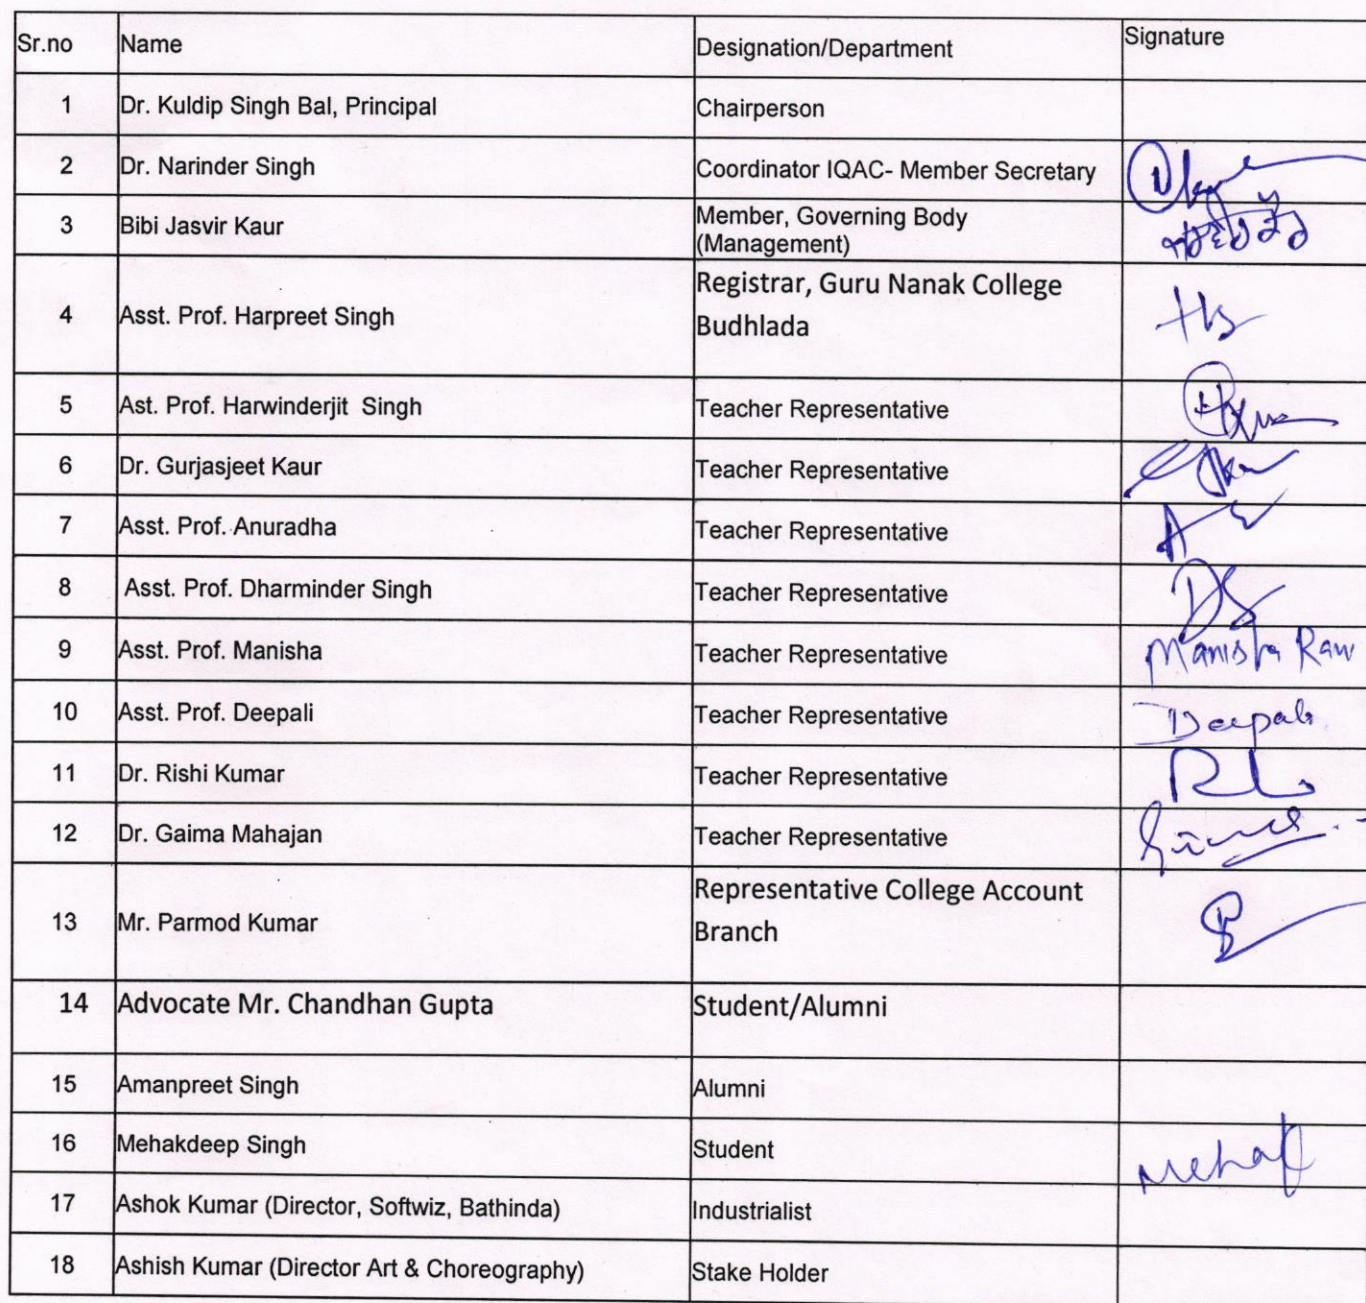 Sr.no Name Designation/Department Signature
1 Dr. Kuldip Singh Bal, Principal Chairperson
2 Dr. Narinder Singh Coordinator IQAC- Member Secretary
3 Bibi Jasvir Kaur Member, Governing Body
(Management)
4 Asst. Prof. Harpreet Singh Registrar, Guru Nanak College
Budhlada HS
5 Ast. Prof. Harwinderjit  Singh Teacher Representative
6 Dr. Gurjasjeet Kaur Teacher Representative
7 Asst. Prof. Anuradha Teacher Representative
8 Asst. Prof. Dharminder Singh Teacher Representative DS
9 Asst. Prof. Manisha Teacher Representative Manisha Rani
10 Asst. Prof. Deepali Teacher Representative Deepali
11 Dr. Rishi Kumar Teacher Representative
12 Dr. Gaima Mahajan Teacher Representative
13 Mr. Parmod Kumar Representative College Account
Branch
14 Advocate Mr. Chandhan Gupta Student/Alumni
15 Amanpreet Singh Alumni
16 Mehakdeep Singh Student Mehak
17 Ashok Kumar (Director, Softwiz, Bathinda) Industrialist
18 Ashish Kumar (Director Art & Choreography) Stake Holder